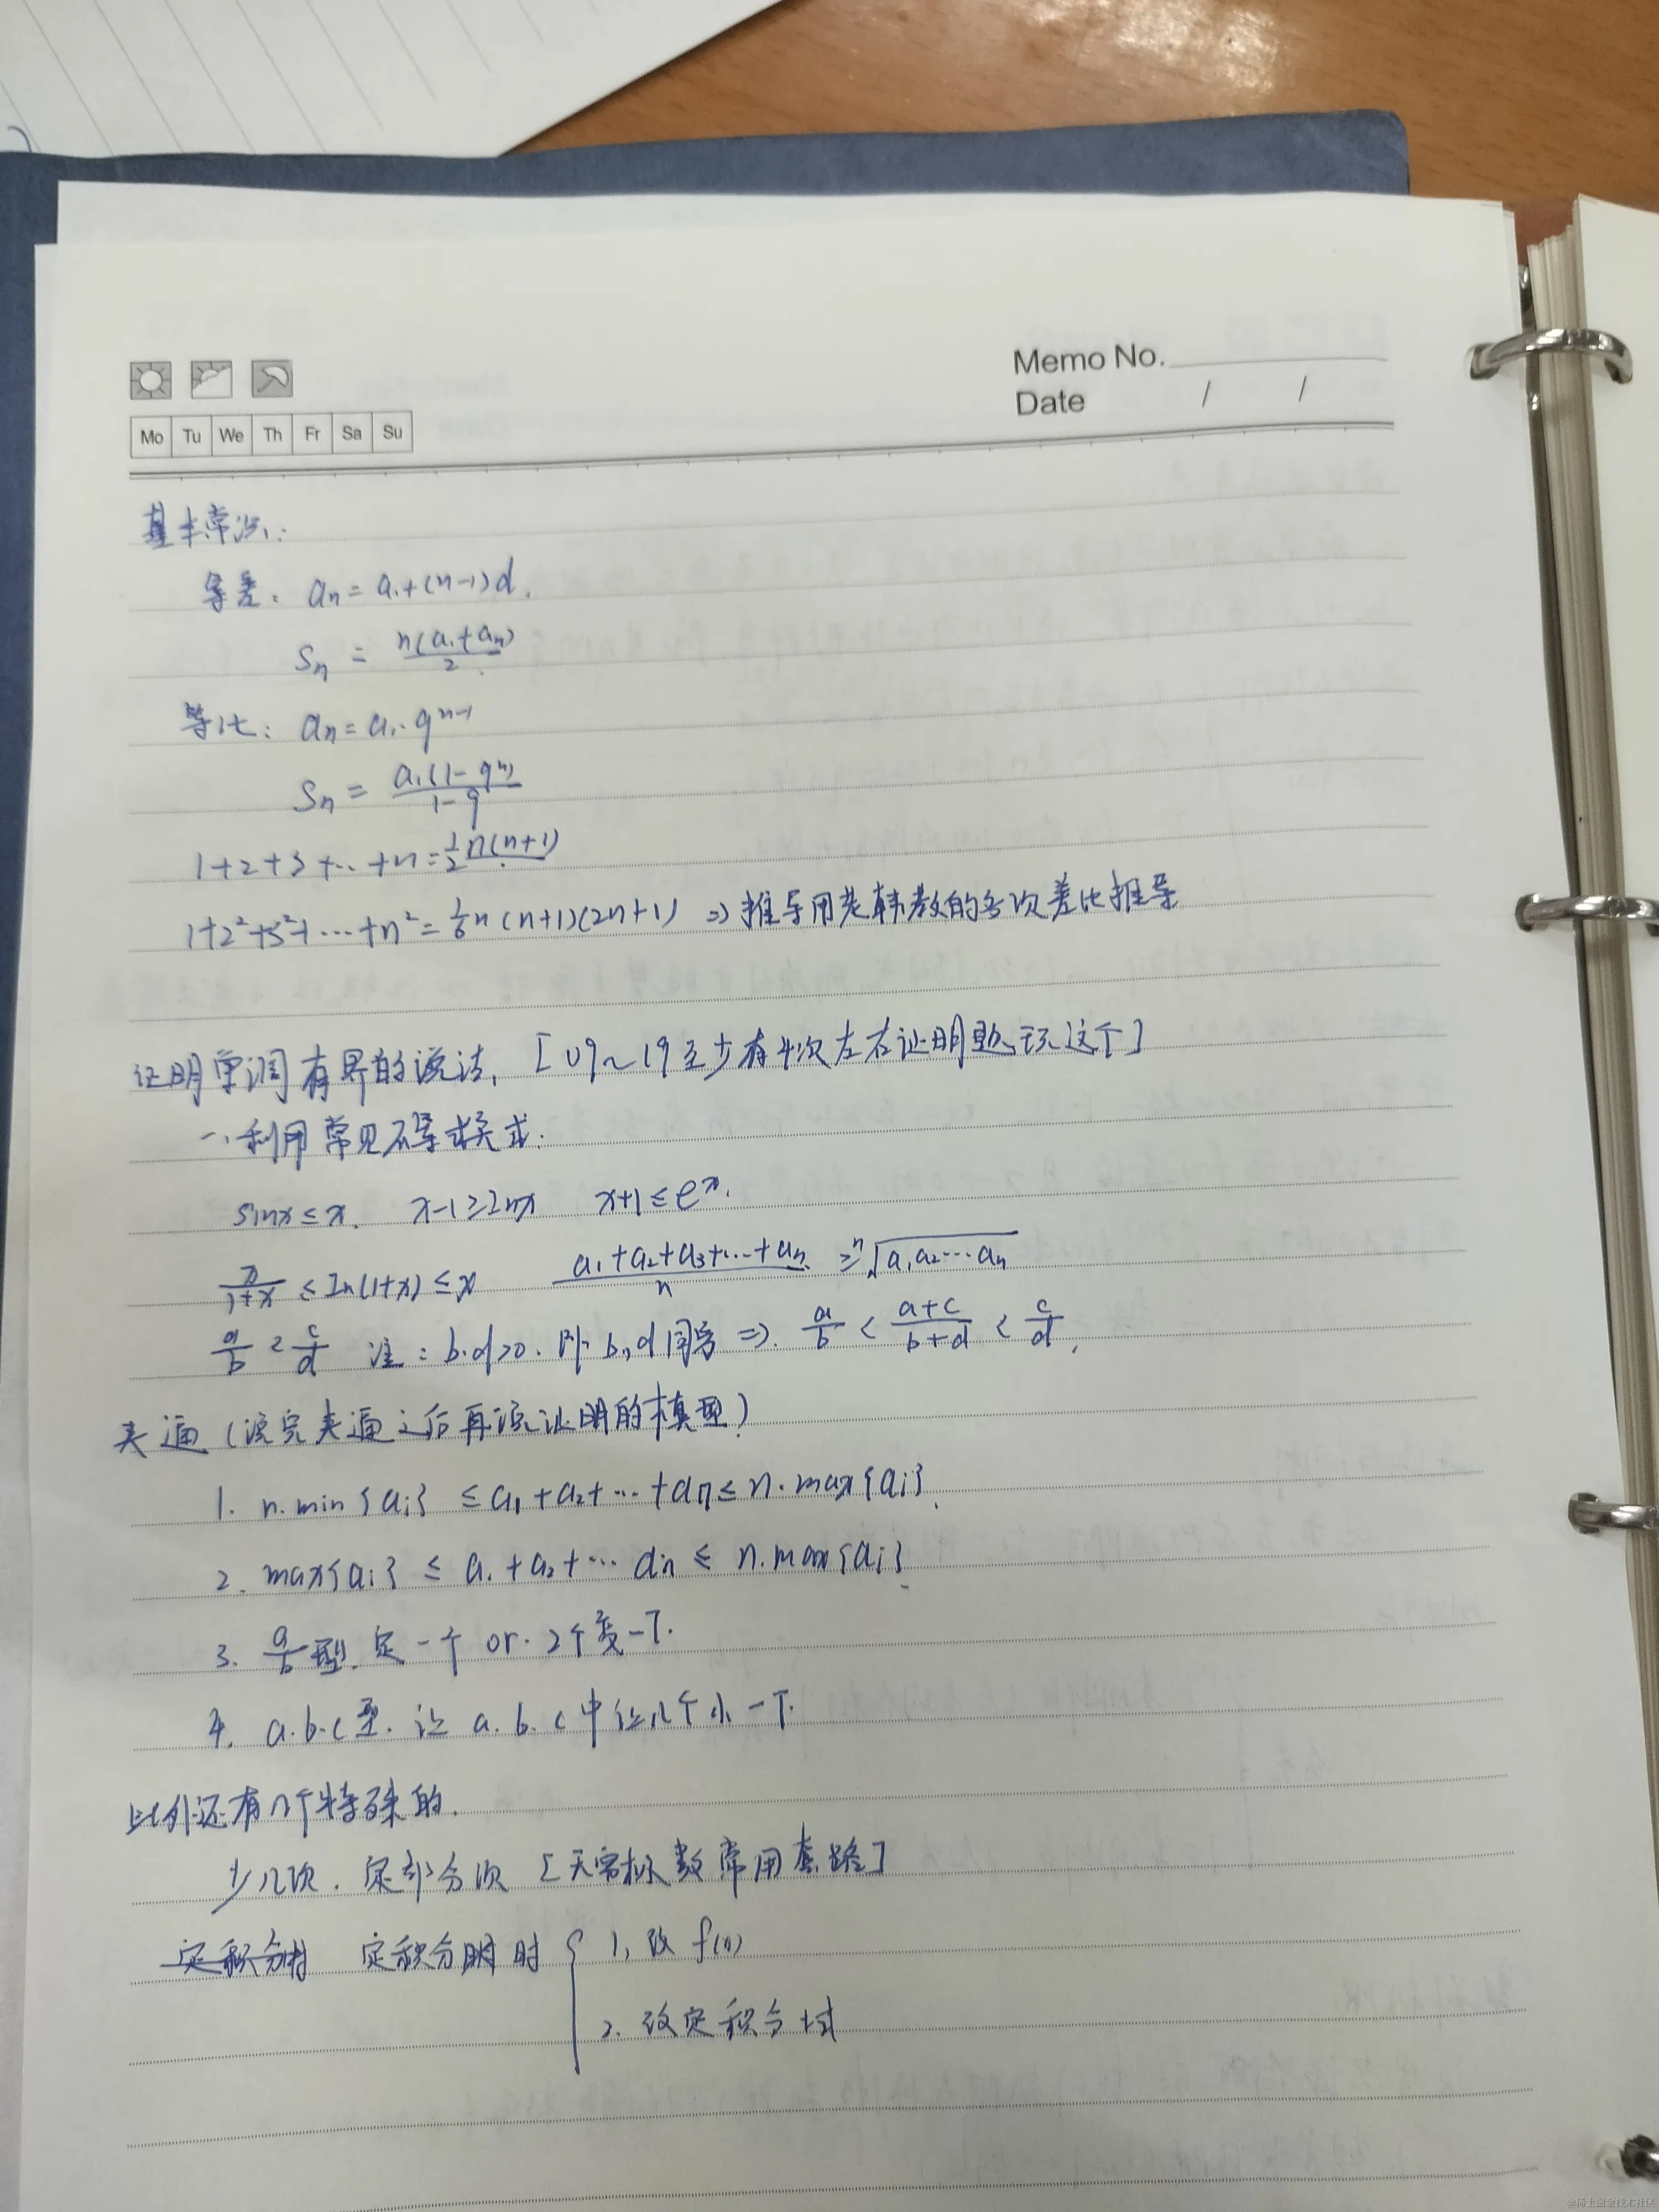 Memo No.
Date / /
Mo Tu We Th Fr Sa Su
基本常识:
等差: an = a1+(n-1)d.
Sn = n(a1+an)/2
等比: an = a1·q^(n-1)
Sn = a1(1-q^n)/(1-q)
1+2+3+…+n = 1/2 n(n+1)
1+2²+3²+…+n² = 1/6 n(n+1)(2n+1) => 推导用老韩教的多次差比推导
证明单调有界的说法, [09~19至少有4次左右证明题, 玩这个]
一、利用常见不等式:
sinx ≤ x. x-1 ≥ lnx x+1 ≤ e^x.
x/(1+x) ≤ ln(1+x) ≤ x (a1+a2+a3+…+an)/n ≥ ⁿ√(a1a2…an)
a/b < c/d 注: b·d>0. 即 b,d同号 => a/b < (a+c)/(b+d) < c/d,
夹逼(说完夹逼之后再说证明的模型)
1. n.min{ai} ≤ a1+a2+…+an ≤ n.max{ai}.
2. max{ai} ≤ a1+a2+…an ≤ n.max{ai}
3. a/b型. 定一个 or. 2个变一下.
4. a.b.c型. 让 a.b.c中让几个小一下.
此外还有几个特殊的.
少几项. 定部分项 [无穷级数常用套路]
定积分时 定积分明时 { 1, 改 f(n)
2. 改定积分域
@稀土掘金技术社区